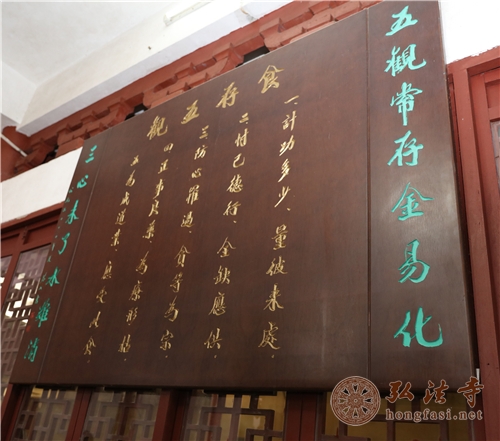 五觀常存金易化
食存五觀
一、計功多少、量彼来處.
二忖己德行、全缺應供.
三防心離過、貪等為宗.
四正事良藥、為療形枯
五為成道業、應受此食.
三心未了水難消
弘法寺
hongfasi.net